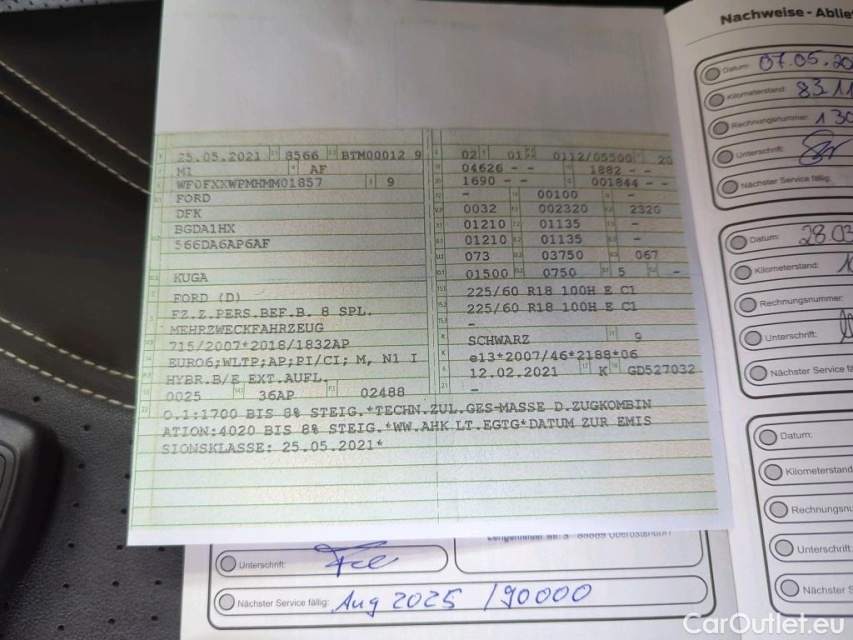 Nachweise - Ablie
25.05.2021 8566 BTM00012 9
M1 AF
WF0FXXWPMHMM01857 9
FORD
DFK
BGDA1HX
566DA6AP6AF
KUGA
FORD (D)
FZ.Z.PERS.BEF.B. 8 SPL.
MEHRZWECKFAHRZEUG
715/2007*2018/1832AP
EURO6;WLTP;AP;PI/CI; M, N1 I
HYBR.B/E EXT.AUFL.
0025 36AP 02488
02 01 0112/05500 20
04626 - - 1882 - -
1690 - - 001844 - -
- 00100 -
0032 002320 2320
01210 01135 -
01210 01135 -
073 03750 067
01500 0750 5 -
225/60 R18 100H E C1
225/60 R18 100H E C1
-
SCHWARZ 9
e13*2007/46*2188*06
12.02.2021 K GD527032
-
O.1:1700 BIS 8% STEIG.*TECHN.ZUL.GES-MASSE D.ZUGKOMBIN
ATION:4020 BIS 8% STEIG.*WW.AHK LT.EGTG*DATUM ZUR EMIS
SIONSKLASSE: 25.05.2021*
Datum: 07.05.20
Kilometerstand: 8311
Rechnungsnummer: 130
Unterschrift:
Nächster Service fällig:
Datum: 28.03
Kilometerstand: 10
Rechnungsnummer:
Unterschrift:
Nächster Service fä
Datum:
Kilometerstand
Rechnungsnu
Unterschrift:
Nächster S
Unterschrift:
Nächster Service fällig: Aug 2025 / 90000
CarOutlet.eu